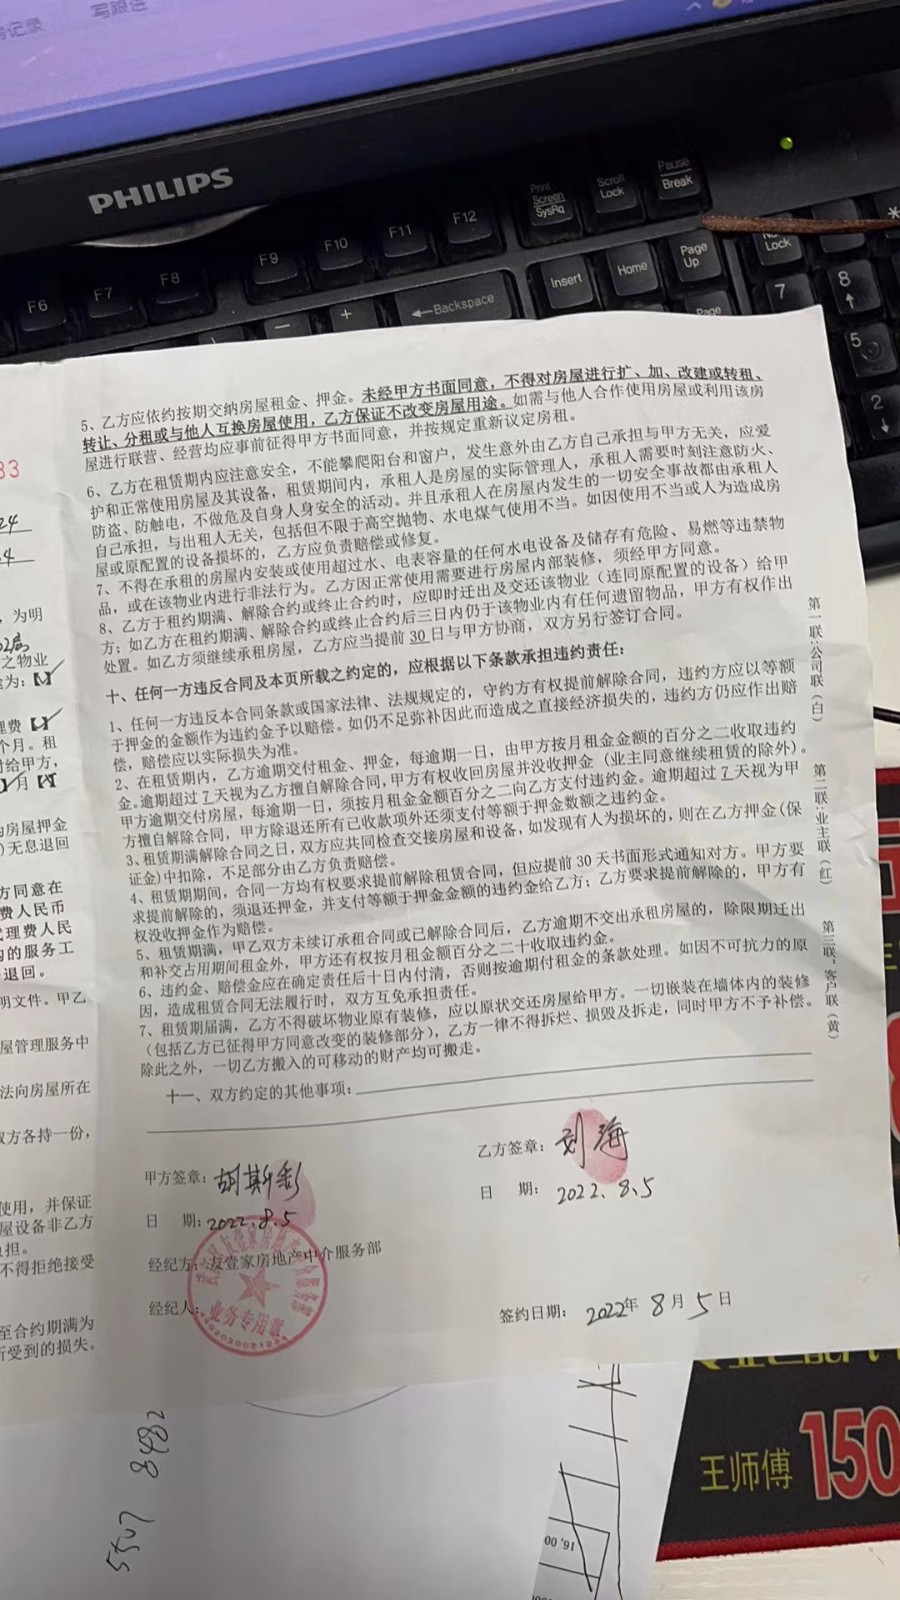 写跟进
PHILIPS
Print
Screen
SysRq
Scroll
Lock
Pause
Break
F6
F7
F8
F9
F10
F11
F12
Backspace
Insert
Home
Page
Up
Lock
7
8
5
2
5、乙方应依约按期交纳房屋租金、押金。未经甲方书面同意，不得对房屋进行扩、加、改建或转租、
转让、分租或与他人互换房屋使用，乙方保证不改变房屋用途。如需与他人合作使用房屋或利用该房
屋进行联营、经营均应事前征得甲方书面同意，并按规定重新议定房租。
6、乙方在租赁期内应注意安全，不能攀爬阳台和窗户，发生意外由乙方自己承担与甲方无关，应爱
护和正常使用房屋及其设备，租赁期间内，承租人是房屋的实际管理人，承租人需要时刻注意防火、
防盗、防触电，不做危及自身人身安全的活动。并且承租人在房屋内发生的一切安全事故都由承租人
自己承担，与出租人无关，包括但不限于高空抛物、水电煤气使用不当。如因使用不当或人为造成房
屋或原配置的设备损坏的，乙方应负责赔偿或修复。
7、不得在承租的房屋内安装或使用超过水、电表容量的任何水电设备及储存有危险、易燃等违禁物
品，或在该物业内进行非法行为。乙方因正常使用需要进行房屋内部装修，须经甲方同意。
8、乙方于租约期满、解除合约或终止合约时，应即时迁出及交还该物业（连同原配置的设备）给甲
方；如乙方在租约期满、解除合约或终止合约后三日内仍于该物业内有任何遗留物品，甲方有权作出
处置。如乙方须继续承租房屋，乙方应当提前30日与甲方协商，双方另行签订合同。
十、任何一方违反合同及本页所载之约定的，应根据以下条款承担违约责任：
1、任何一方违反本合同条款或国家法律、法规规定的，守约方有权提前解除合同，违约方应以等额
于押金的金额作为违约金予以赔偿。如仍不足弥补因此而造成之直接经济损失的，违约方仍应作出赔
偿，赔偿应以实际损失为准。
2、在租赁期内，乙方逾期交付租金、押金，每逾期一日，由甲方按月租金金额的百分之二收取违约
金。逾期超过7天视为乙方擅自解除合同，甲方有权收回房屋并没收押金（业主同意继续租赁的除外）。
甲方逾期交付房屋，每逾期一日，须按月租金金额百分之二向乙方支付违约金。逾期超过7天视为甲
方擅自解除合同，甲方除退还所有已收款项外还须支付等额于押金数额之违约金。
3、租赁期满解除合同之日，双方应共同检查交接房屋和设备，如发现有人为损坏的，则在乙方押金(保
证金)中扣除，不足部分由乙方负责赔偿。
4、租赁期期间，合同一方均有权要求提前解除租赁合同，但应提前30天书面形式通知对方。甲方要
求提前解除的，须退还押金，并支付等额于押金金额的违约金给乙方；乙方要求提前解除的，甲方有
权没收押金作为赔偿。
5、租赁期满，甲乙双方未续订承租合同或已解除合同后，乙方逾期不交出承租房屋的，除限期迁出
和补交占用期间租金外，甲方还有权按月租金额百分之二十收取违约金。
6、违约金、赔偿金应在确定责任后十日内付清，否则按逾期付租金的条款处理。如因不可抗力的原
因，造成租赁合同无法履行时，双方互免承担责任。
7、租赁期届满，乙方不得破坏物业原有装修，应以原状交还房屋给甲方。一切嵌装在墙体内的装修
（包括乙方已征得甲方同意改变的装修部分），乙方一律不得拆烂、损毁及拆走，同时甲方不予补偿。
除此之外，一切乙方搬入的可移动的财产均可搬走。
十一、双方约定的其他事项：
甲方签章：胡斯彩
日 期：2022.8.5
乙方签章：刘海
日 期：2022.8.5
经纪方：友壹家房地产中介服务部
经纪人：
业务专用章
签约日期：2022年8月5日
第一联：公司联（白）
第二联：业主联（红）
第三联：客户联（黄）
33
24
，为明
之物业
为：【】
理费【】
个月。租
付给甲方，
】月【】
房屋押金
)无息退回
方同意在
费人民币
代理费人民
的服务工
退回。
明文件。甲乙
屋管理服务中
法向房屋所在
双方各持一份，
使用，并保证
屋设备非乙方
负担。
不得拒绝接受
至合约期满为
所受到的损失。
5507 8482
16,00
王师傅 150